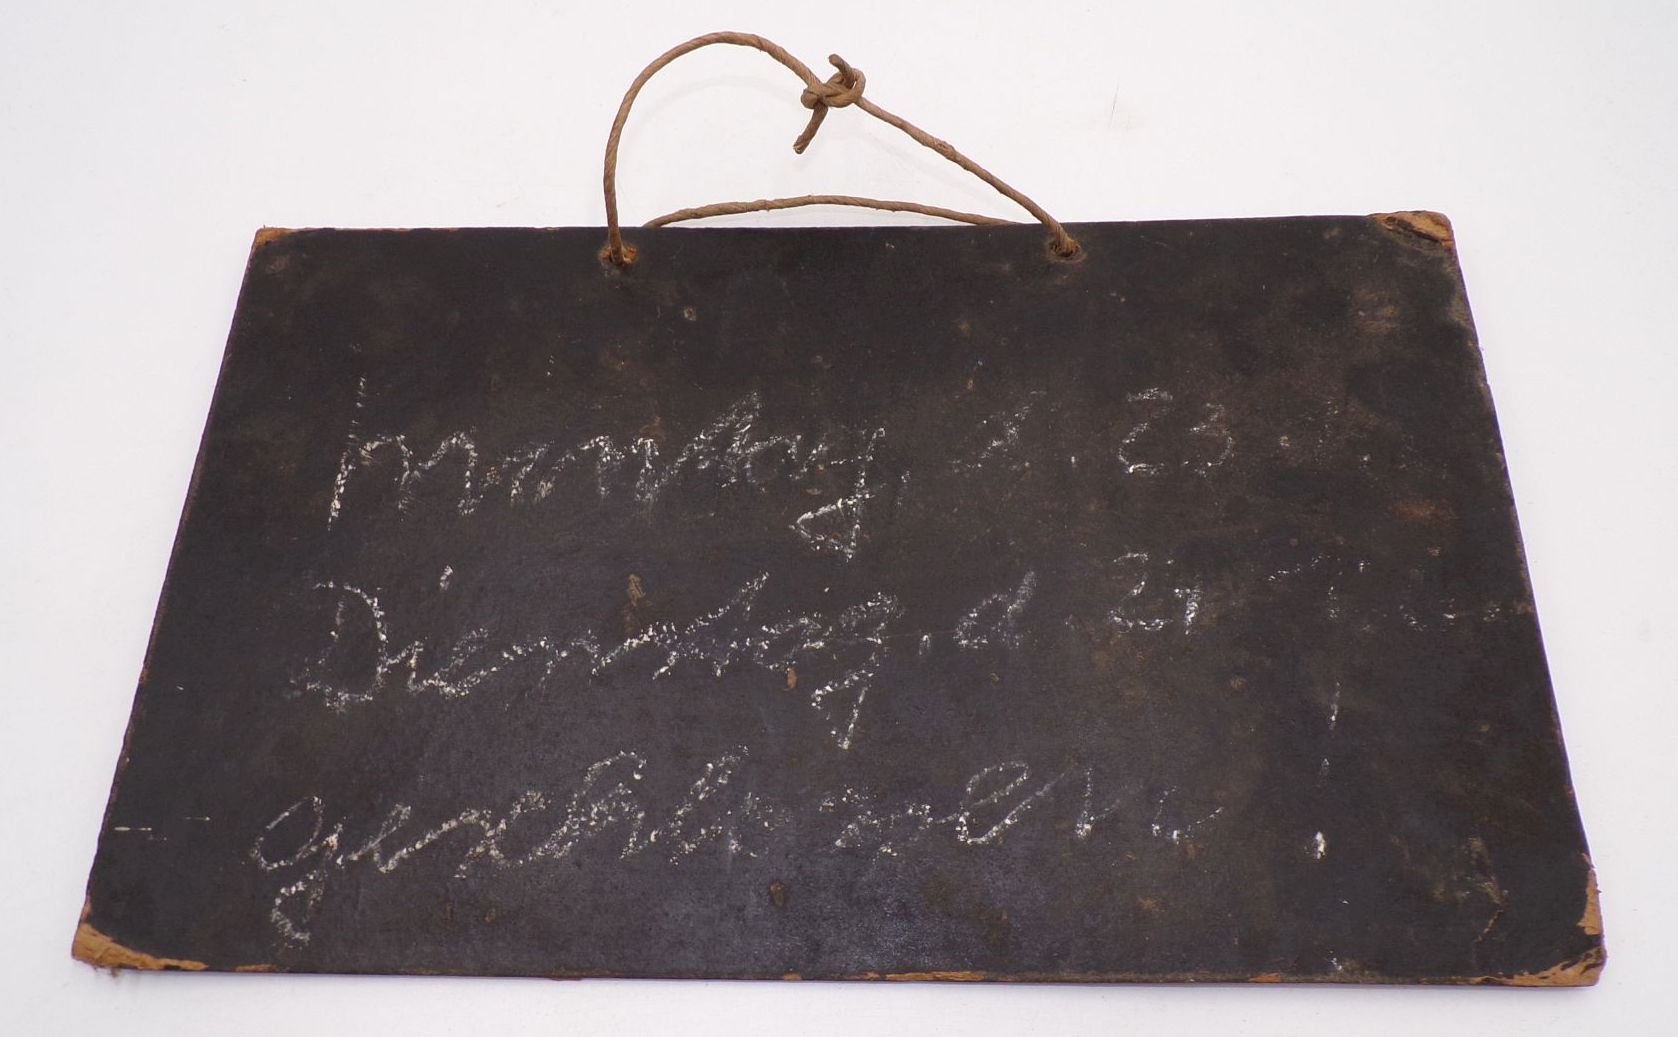 Montag, d. 23.
Dienstag, d. 24.
geschlossen!